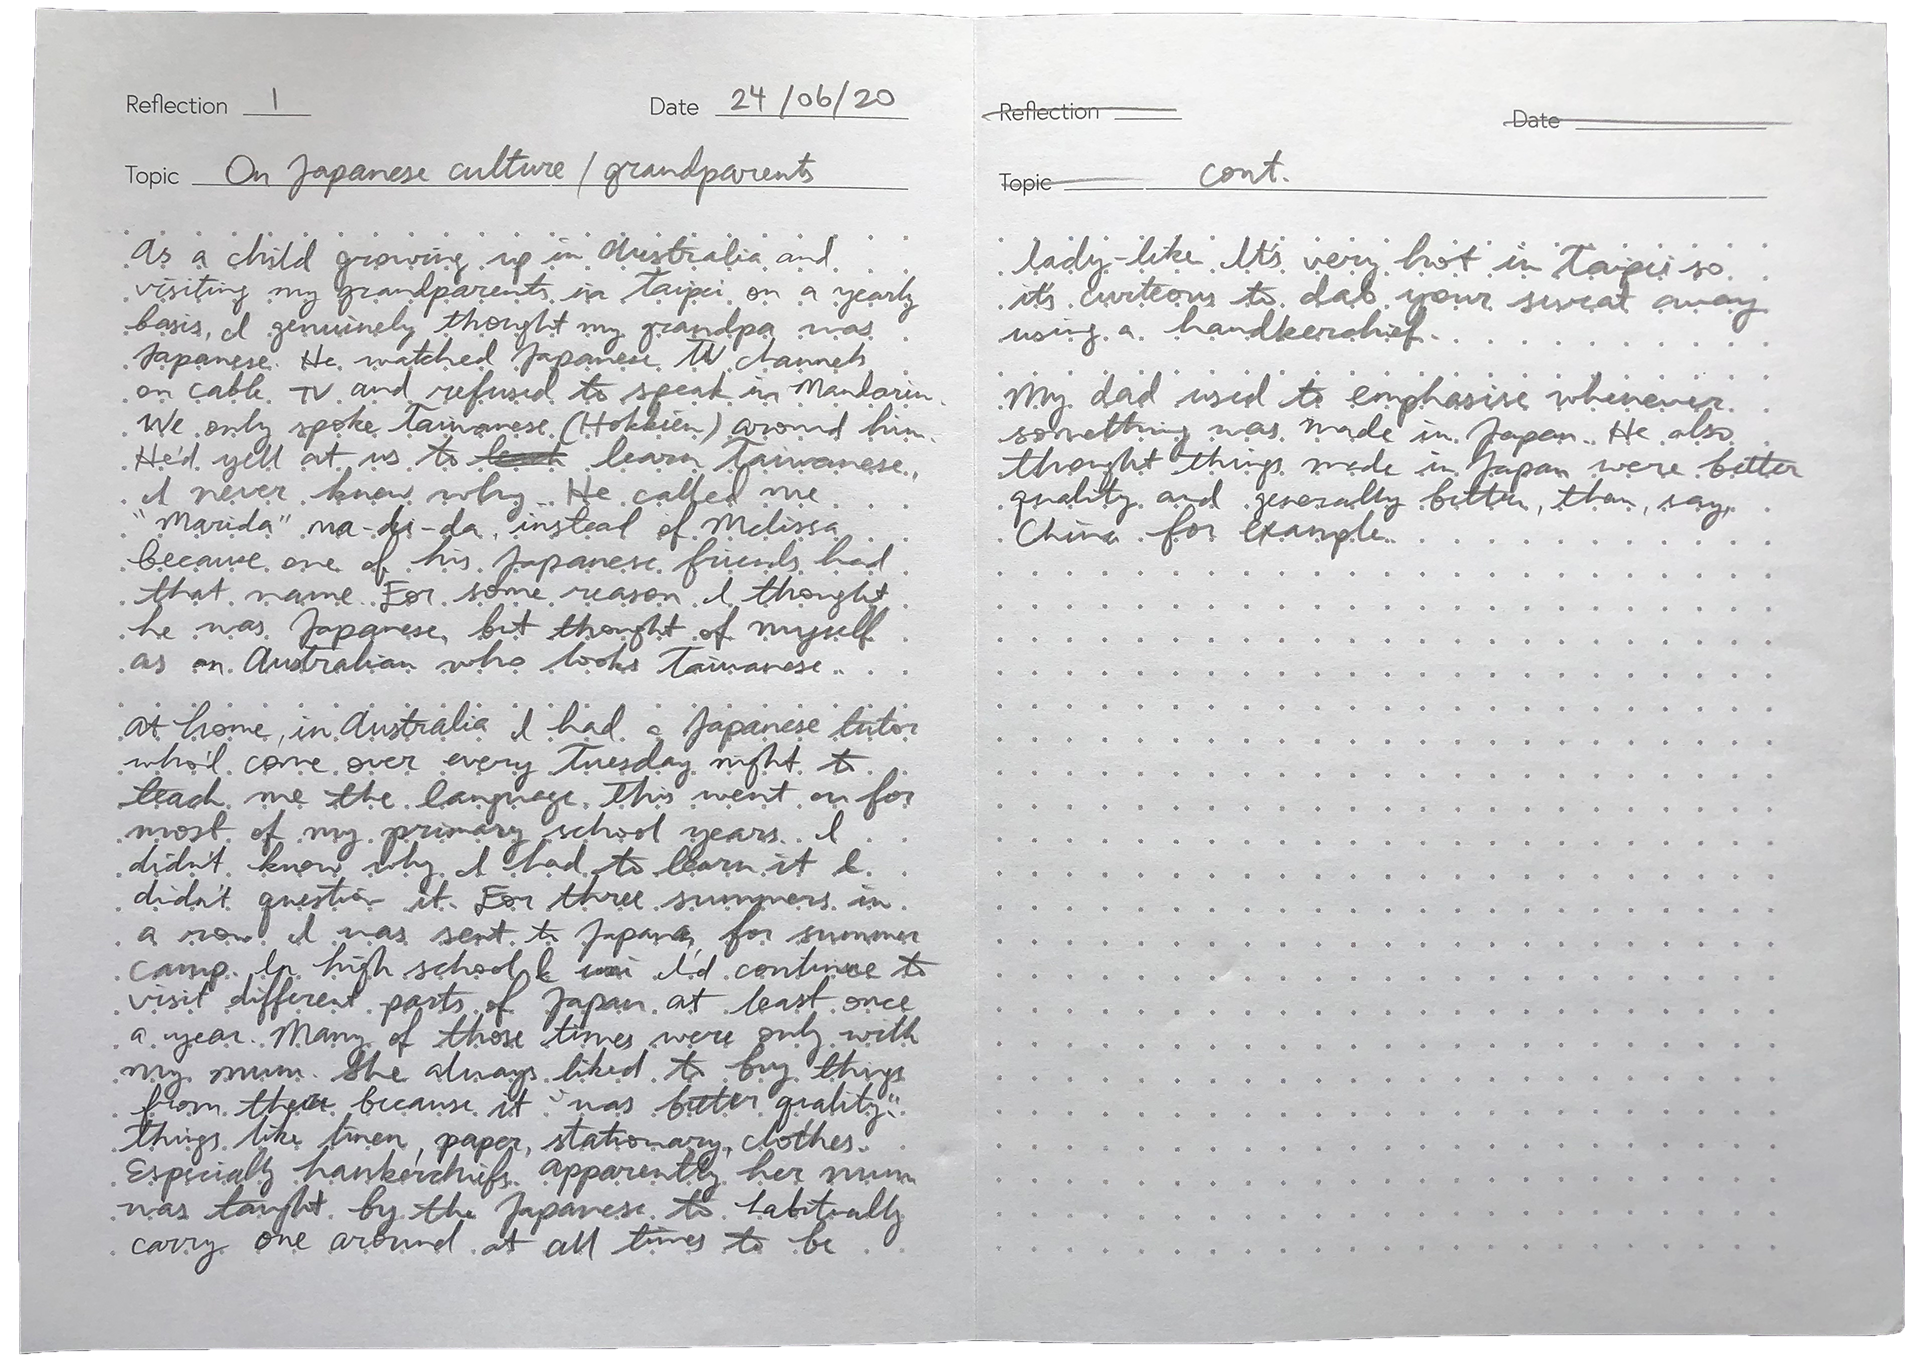 Reflection 1 Date 24/06/20
Topic On Japanese culture / grandparents
As a child growing up in Australia and
visiting my grandparents in Taipei on a yearly
basis, I genuinely thought my grandpa was
Japanese. He watched Japanese TV channels
on cable TV and refused to speak in Mandarin.
We only spoke Taiwanese (Hokkien) around him.
He'd yell at us to learn Taiwanese.
I never knew why. He called me
"Marida" ma-di-da, instead of Melissa
because one of his Japanese friends had
that name. For some reason I thought
he was Japanese, but thought of myself
as an Australian who looks Taiwanese.
At home, in Australia I had a Japanese tutor
who'd come over every Tuesday night to
teach me the language. This went on for
most of my primary school years. I
didn't know why I had to learn it &
didn't question it. For three summers in
a row I was sent to Japan for summer
camp. In high school & uni I'd continue to
visit different parts of Japan at least once
a year. Many of those times were only with
my mum. She always liked to buy things
from there because it "was better quality".
things like linen, paper, stationary, clothes.
Especially hankerchiefs. Apparently her mum
was taught by the Japanese to habitually
carry one around at all times to be
Reflection
Date
Topic cont.
lady-like. It's very hot in Taipei so
it's curteous to dab your sweat away
using a handkerchief.
My dad used to emphasise whenever
something was made in Japan. He also
thought things made in Japan were better
quality and generally better, than, say,
China for example.